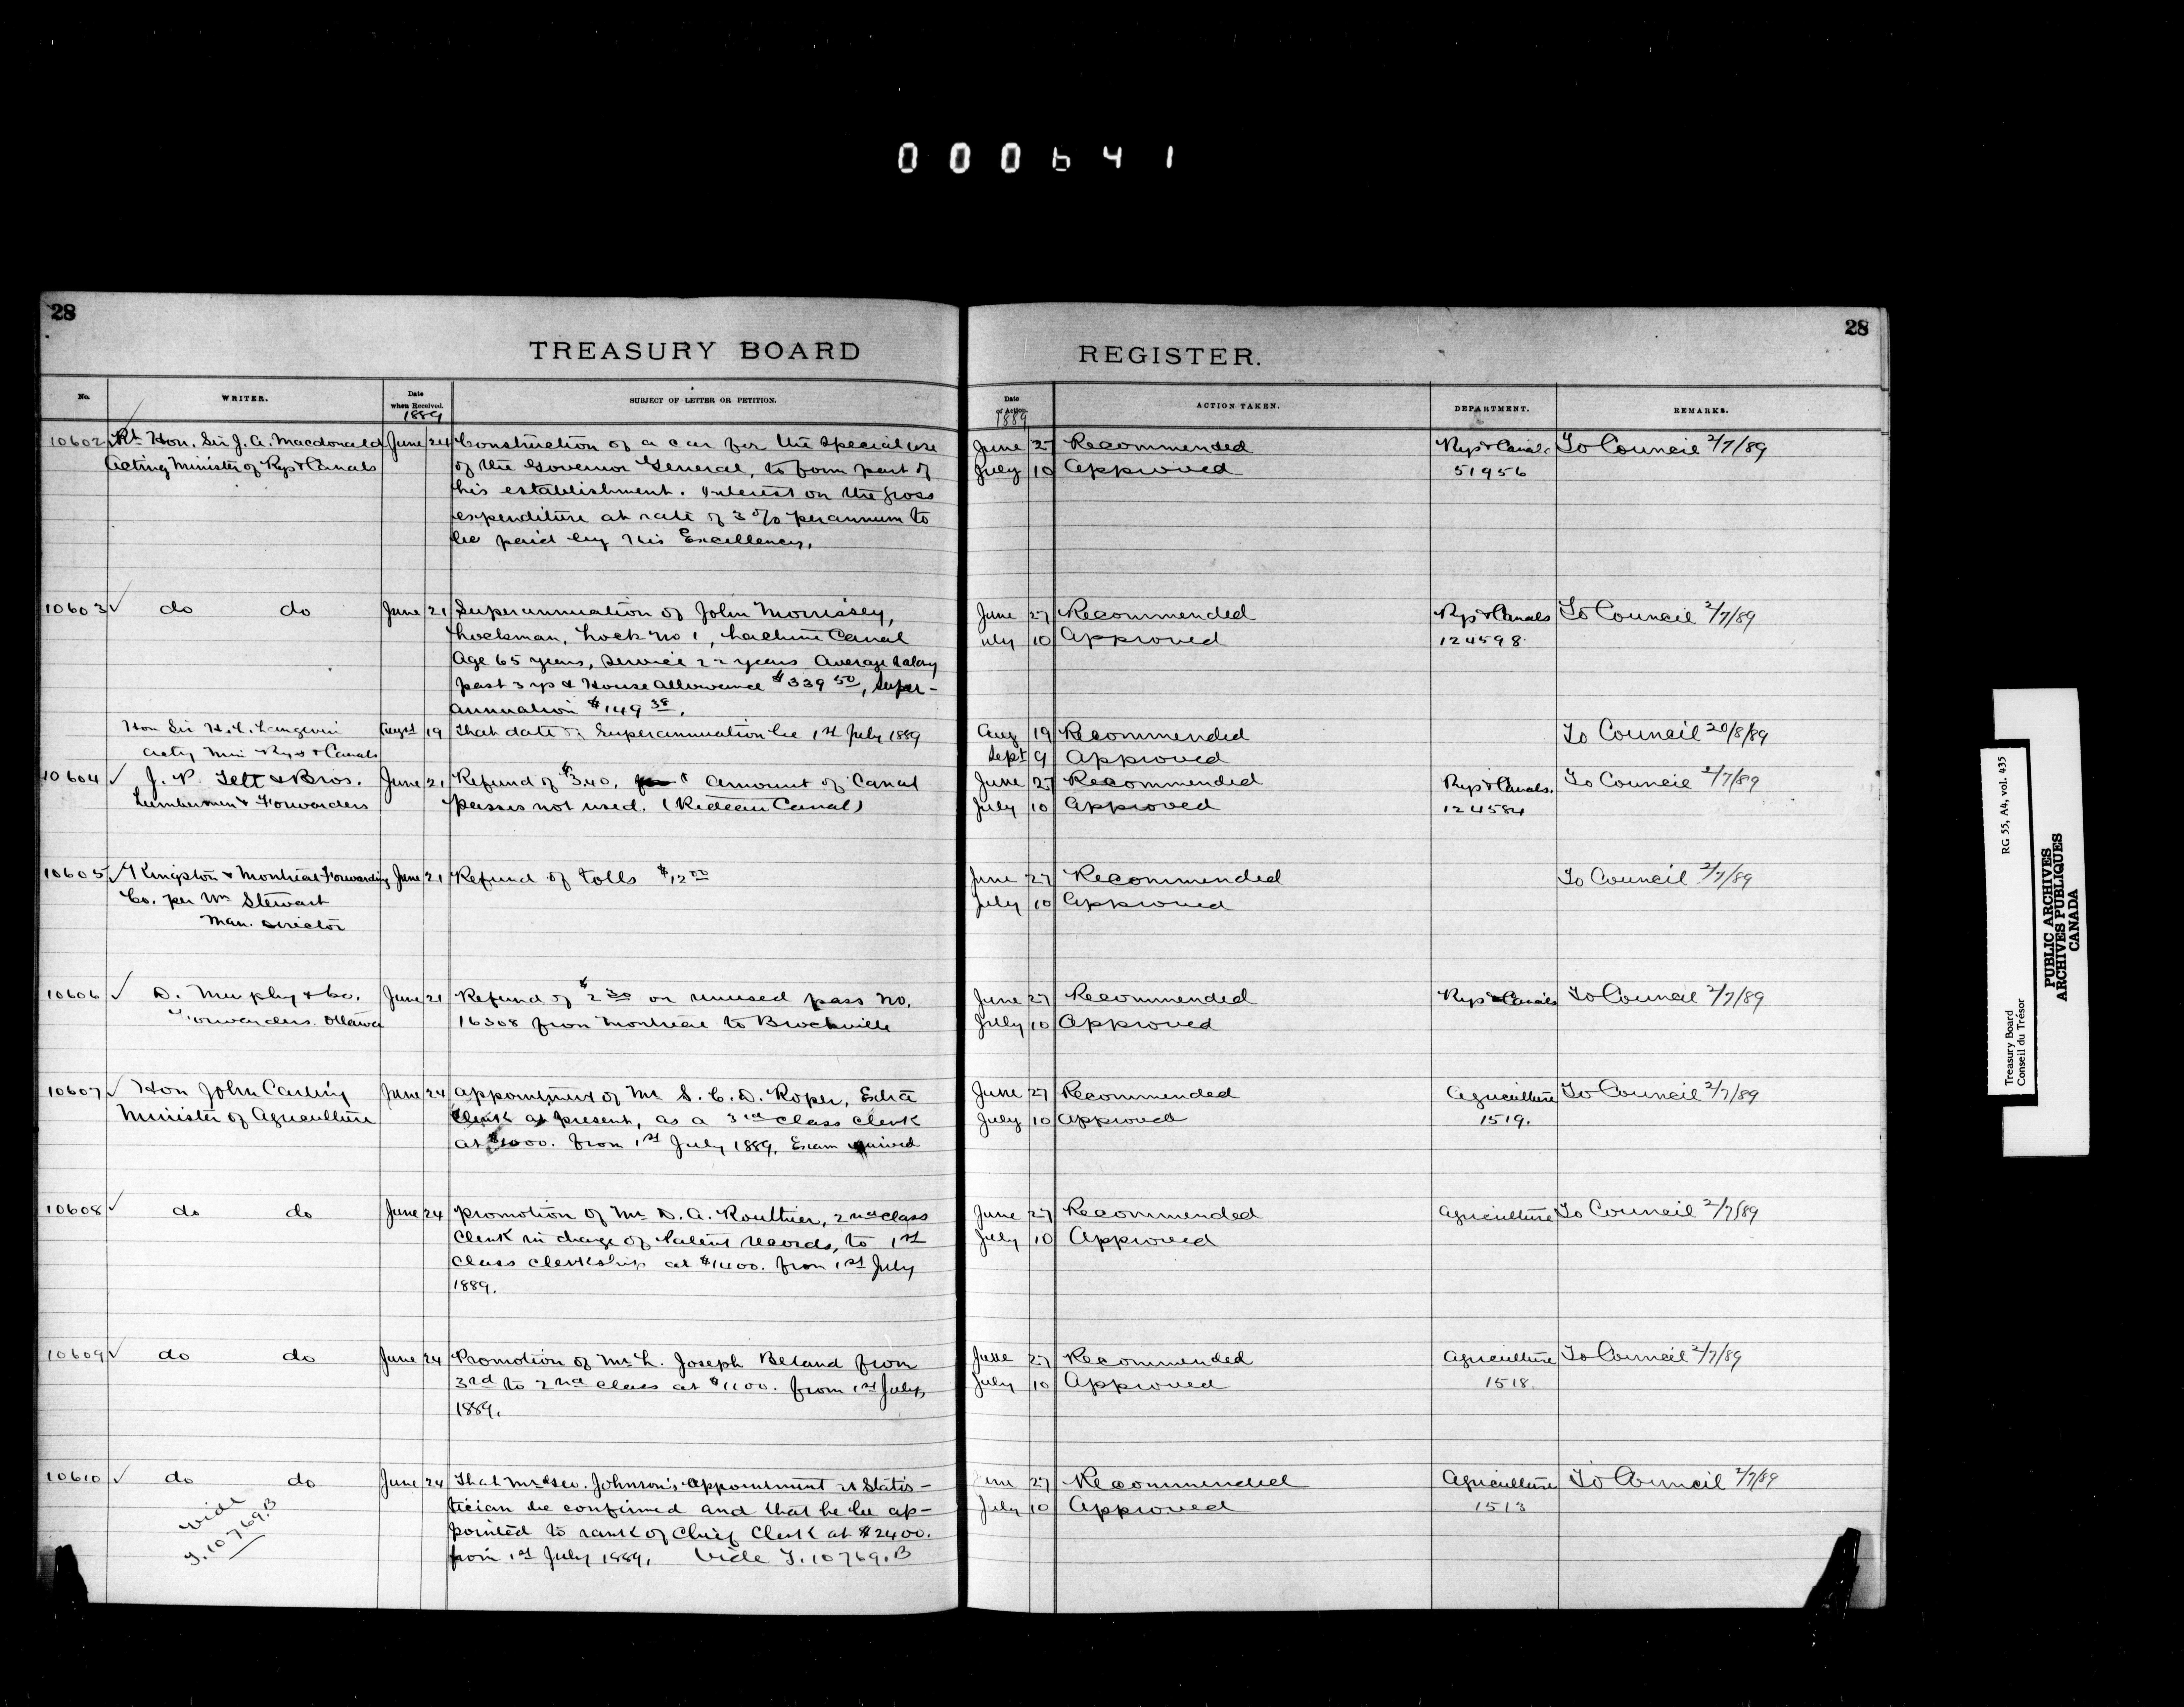 000641
28
28
TREASURY BOARD
REGISTER.
No.
WRITER.
Date when Received.
1889
SUBJECT OF LETTER OR PETITION.
Date of Action.
1889
ACTION TAKEN.
DEPARTMENT.
REMARKS.
10602 Rt Hon. Sir J. A. Macdonald June 24 Construction of a car for the special use June 27 Recommended Rys & Canals To Council 2/7/89
Acting Minister of Rys & Canals of the Governor General, to form part of July 10 Approved 51956
his establishment. Interest on the gross
expenditure at rate of 3% per annum to
be paid by His Excellency.
10603 ✓ do do June 21 Superannuation of John Morrissey, June 27 Recommended Rys & Canals To Council 2/7/89
Lockman, Lock No 1, Lachine Canal July 10 Approved 124598
Age 65 years, Service 22 years Average salary
past 3 yrs & House allowance $339 50, Super-
annuation $149 38.
Hon Sir H. L. Langevin Augst 19 That date of Superannuation be 1st July 1889 Aug 19 Recommended To Council 20/8/89
Actg Min Rys & Canals Sept 9 Approved
10604 ✓ J. P. Tett & Bros. June 21 Refund of $3.40, Amount of Canal June 27 Recommended Rys & Canals. To Council 2/7/89
Lumbermen & Forwarders passes not used. (Rideau Canal) July 10 Approved 124584
10605 ✓ Kingston & Montreal Forwarding June 21 Refund of tolls $12 00 June 27 Recommended To Council 2/7/89
Co. per Wm Stewart July 10 Approved
Man. Director
10606 ✓ D. Murphy & Co. June 21 Refund of $2 30 on unused pass No. June 27 Recommended Rys & Canals To Council 2/7/89
Forwarders. Ottawa 16308 from Montreal to Brockville July 10 Approved
10607 ✓ Hon John Carling June 24 Appointment of Mr S. C. D. Roper, Extra June 27 Recommended Agriculture To Council 2/7/89
Minister of Agriculture Clerk at present, as a 3rd class clerk July 10 Approved 1519.
at $1000. from 1st July 1889. Exam waived
10608 ✓ do do June 24 Promotion of Mr D. A. Routhier, 2nd class June 27 Recommended Agriculture To Council 2/7/89
Clerk in charge of Patent records, to 1st July 10 Approved
class clerkship at $1400. from 1st July
1889.
10609 ✓ do do June 24 Promotion of Mr L. Joseph Beland from June 27 Recommended Agriculture To Council 2/7/89
3rd to 2nd class at $1100. from 1st July July 10 Approved 1518.
1889.
10610 ✓ do do June 24 That Mr Geo. Johnson's appointment as Statis- June 27 Recommended Agriculture To Council 2/7/89
tician be confirmed and that he be ap- July 10 Approved 1513
pointed to rank of Chief Clerk at $2400.
from 1st July 1889. Vide T. 10769.B
vide
T. 10769.B
Treasury Board
Conseil du Trésor
RG 55, A4, vol. 435
PUBLIC ARCHIVES
ARCHIVES PUBLIQUES
CANADA